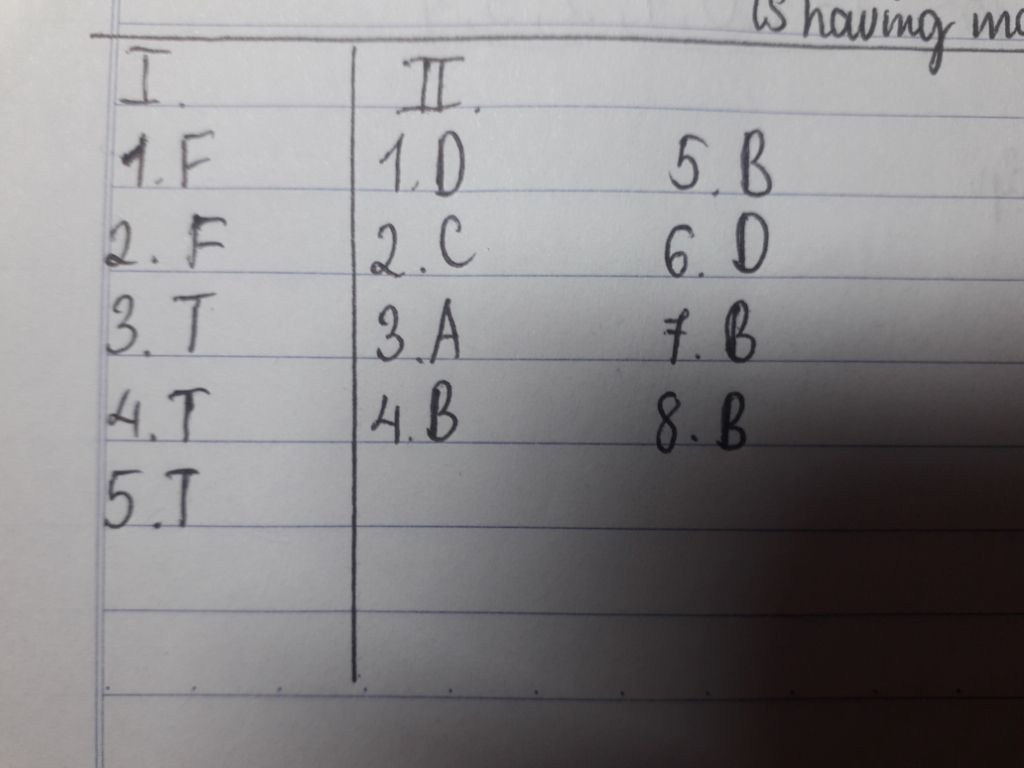 is having
I. II.
1. F 1. D 5. B
2. F 2. C 6. D
3. T 3. A 7. B
4. T 4. B 8. B
5. T